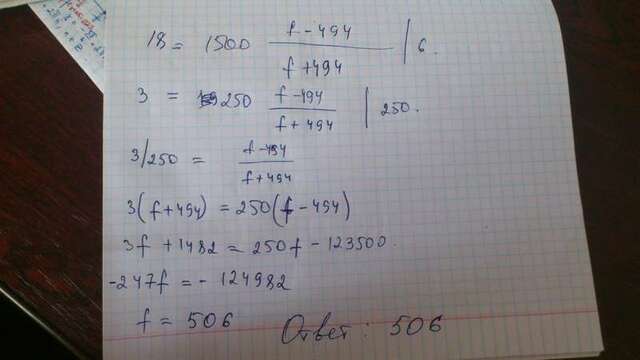 18 = 1500 (f - 494)/(f + 494) | 6.
3 = 250 (f - 494)/(f + 494) | 250.
3/250 = (f - 494)/(f + 494)
3(f + 494) = 250(f - 494)
3f + 1482 = 250f - 123500.
-247f = - 124982
f = 506
Ответ: 506